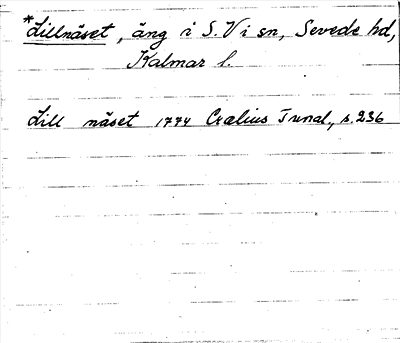 *Lillnäset, äng i S. Vi sn, Sevede hd,
Kalmar l.
Lill näset 1774 Crælius Tunal., s. 236